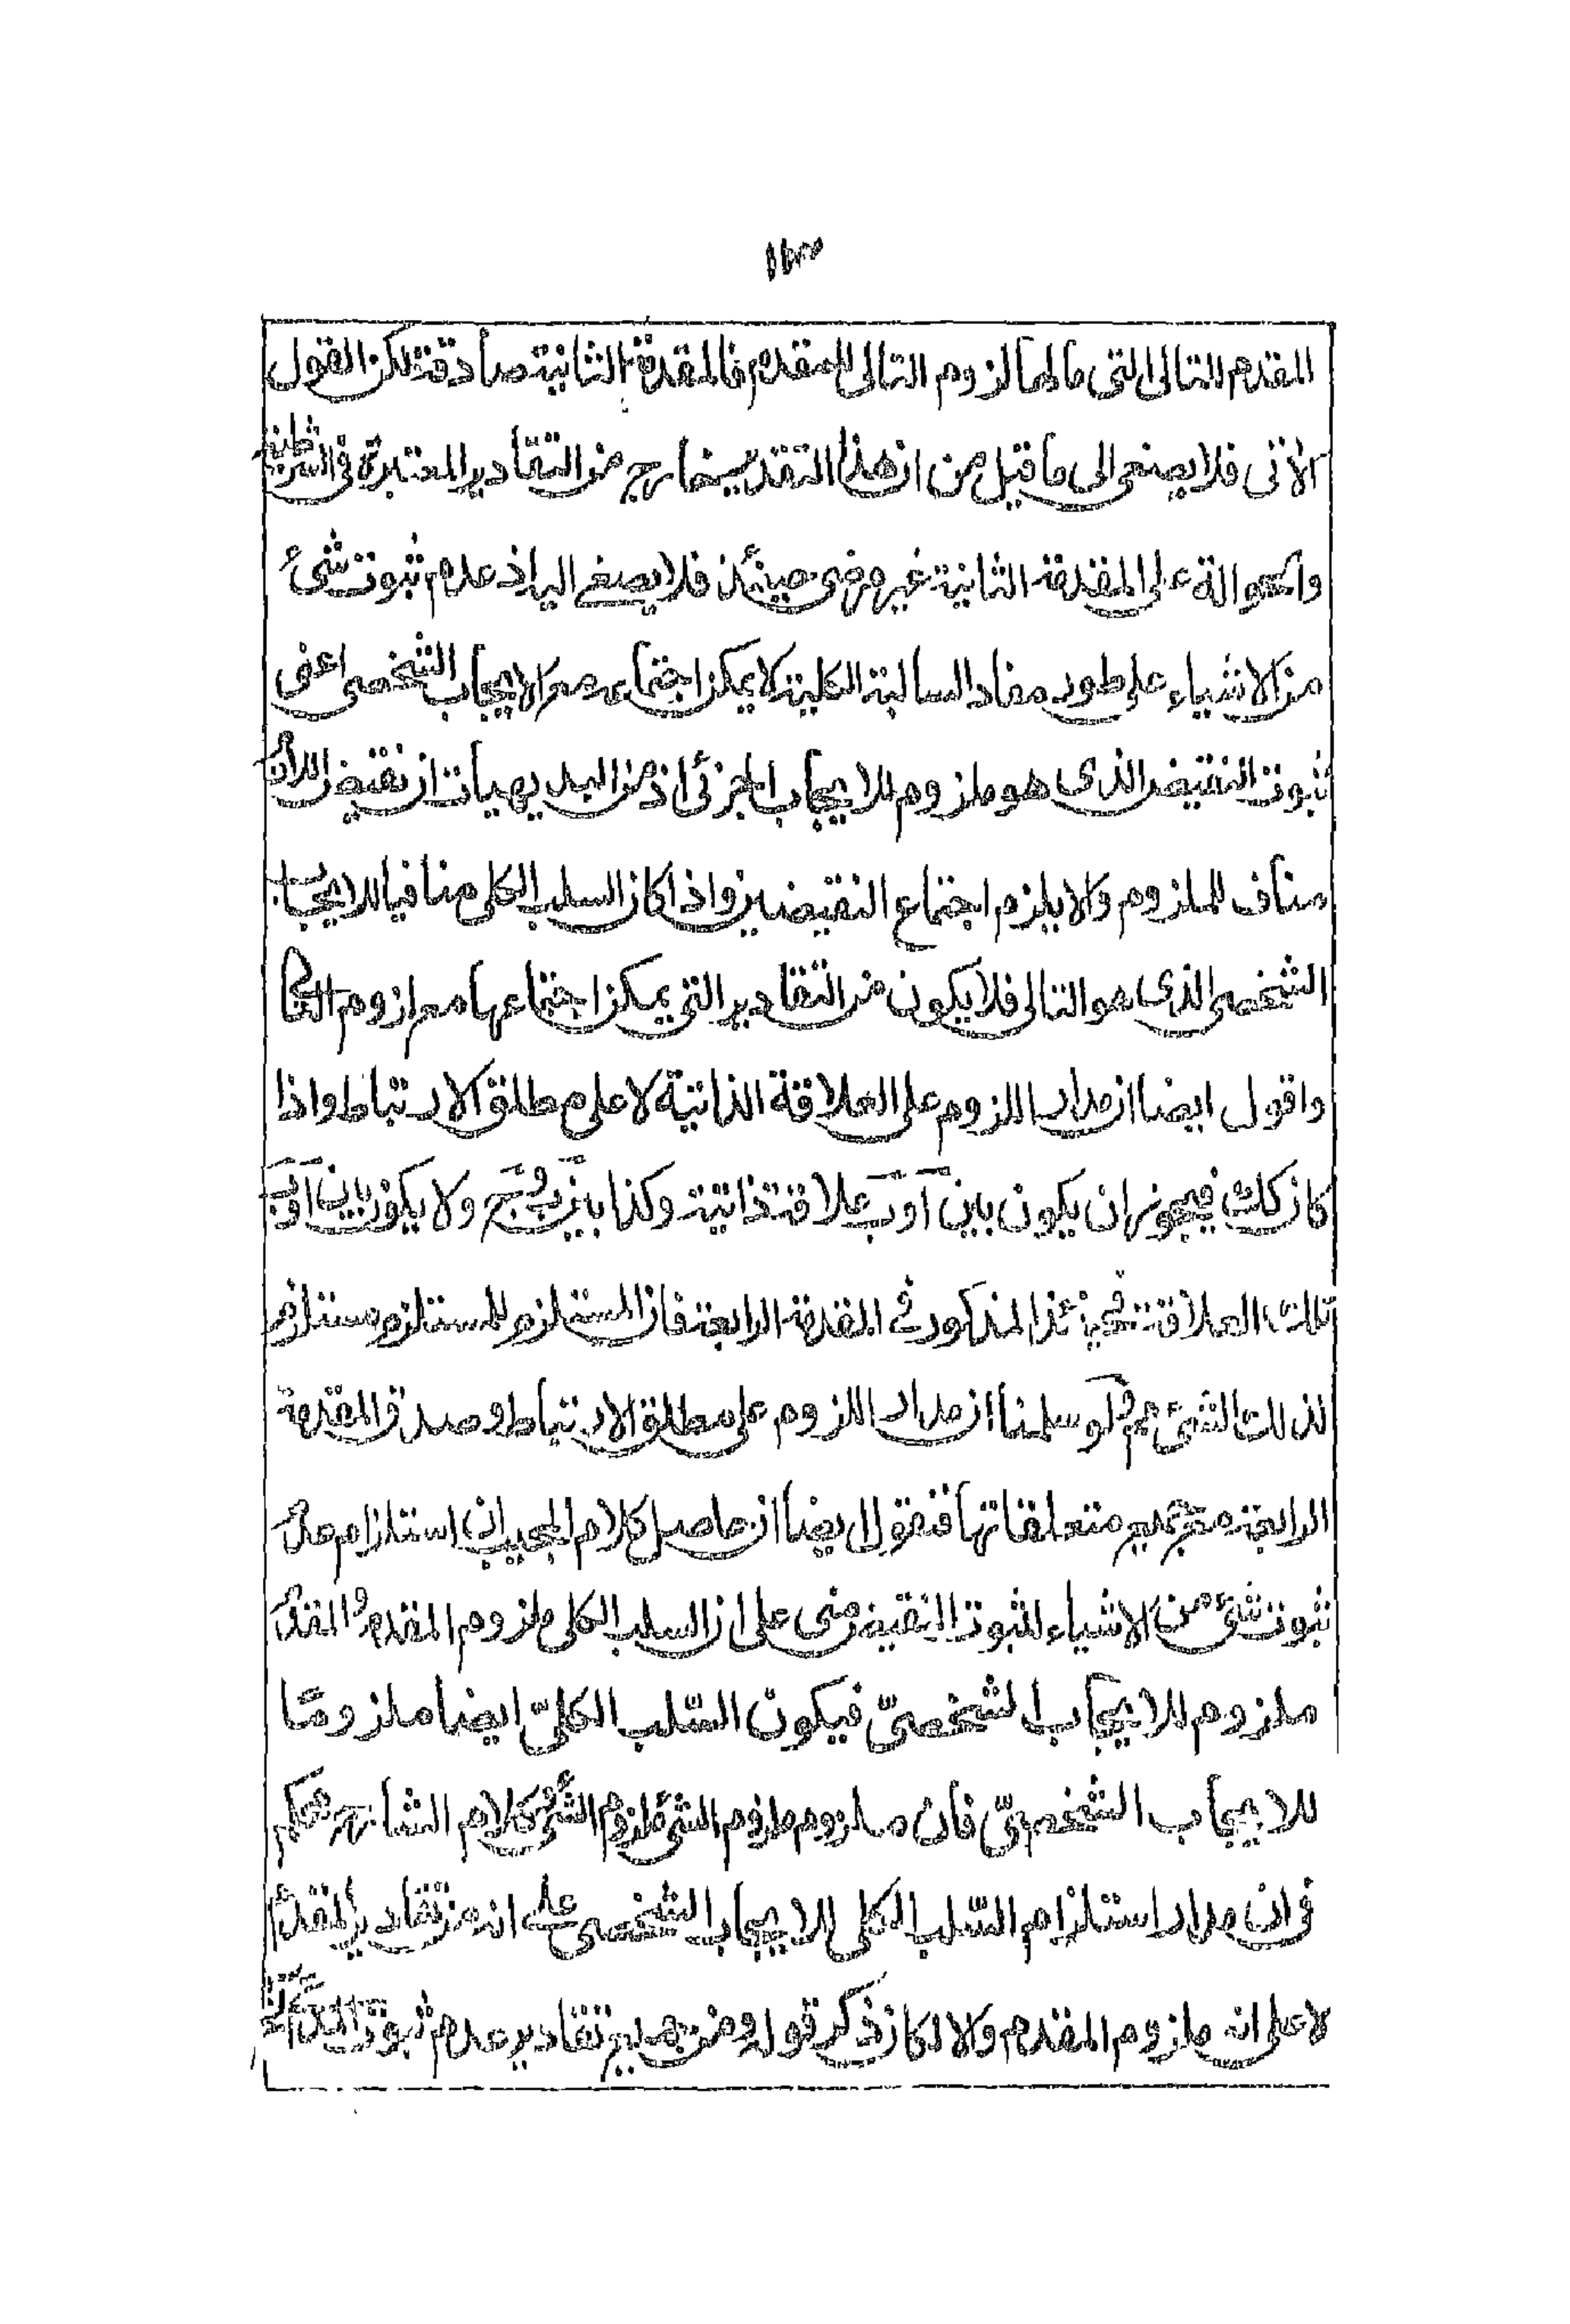 ١١٣
المقدم للتالى التى مالها لزوم التالى للمقدم فالمقدمة الثانية صادقة لكن القول
الآتى فلا يصغى الى ما قيل من ان هذا التقدير خارج من التقادير المعتبرة فى الشرطية
والحوالة على المقدمة الثانية غير مرضى حينئذ فلا يصغى اليه اذ عدم ثبوت شئ
من الاشياء على طور مفاد السالبة الكلية لا يمكن اجتماعه مع الايجاب الشخصى اعنى
ثبوت النقيض الذى هو ملزوم للايجاب الجزئى اذ من البديهيات ان نقيض اللازم
مناف للملزوم والا يلزم اجتماع النقيضين واذا كان السلب الكلى منافيا للايجاب
الشخصى الذى هو التالى فلا يكون من التقادير التى يمكن اجتماعها مع لزوم التالى
واقول ايضا ان مدار اللزوم على العلاقة الذاتية لا على مطلق الارتباط واذا
كان كك فيجوز ان يكون بين آ و ب علاقة ذاتية وكذا بين ب و ج ولا يكون بين ا و ج
تلك العلاقة فحينئذ المذكور فى المقدمة الرابعة فان المستلزم للمستلزم مستلزم
لذلك الشئ مم ولو سلمنا ان مدار اللزوم على مطلق الارتباط وصدق المقدمة
الرابعة مع جميع متعلقاتها فنقول ايضا ان حاصل كلام المجيب ان استلزام عدم
ثبوت شئ من الاشياء لثبوت النقيض مبنى على ان السلب الكلى ملزوم المقدم والمقدم
ملزوم للايجاب الشخصىّ فيكون السّلب الكلىّ ايضا ملزومًا
للايجاب الشخصىّ فان ملزوم ملزوم الشئ ملزوم الشئ وكلام الشارح محكم
فى ان مدار استلزام السّلب الكلى للايجاب الشخصى على انه من تقادير المقدم
لا على انه ملزوم المقدم والا لكان ذكر قوله ومن جميع تقادير عدم ثبوت